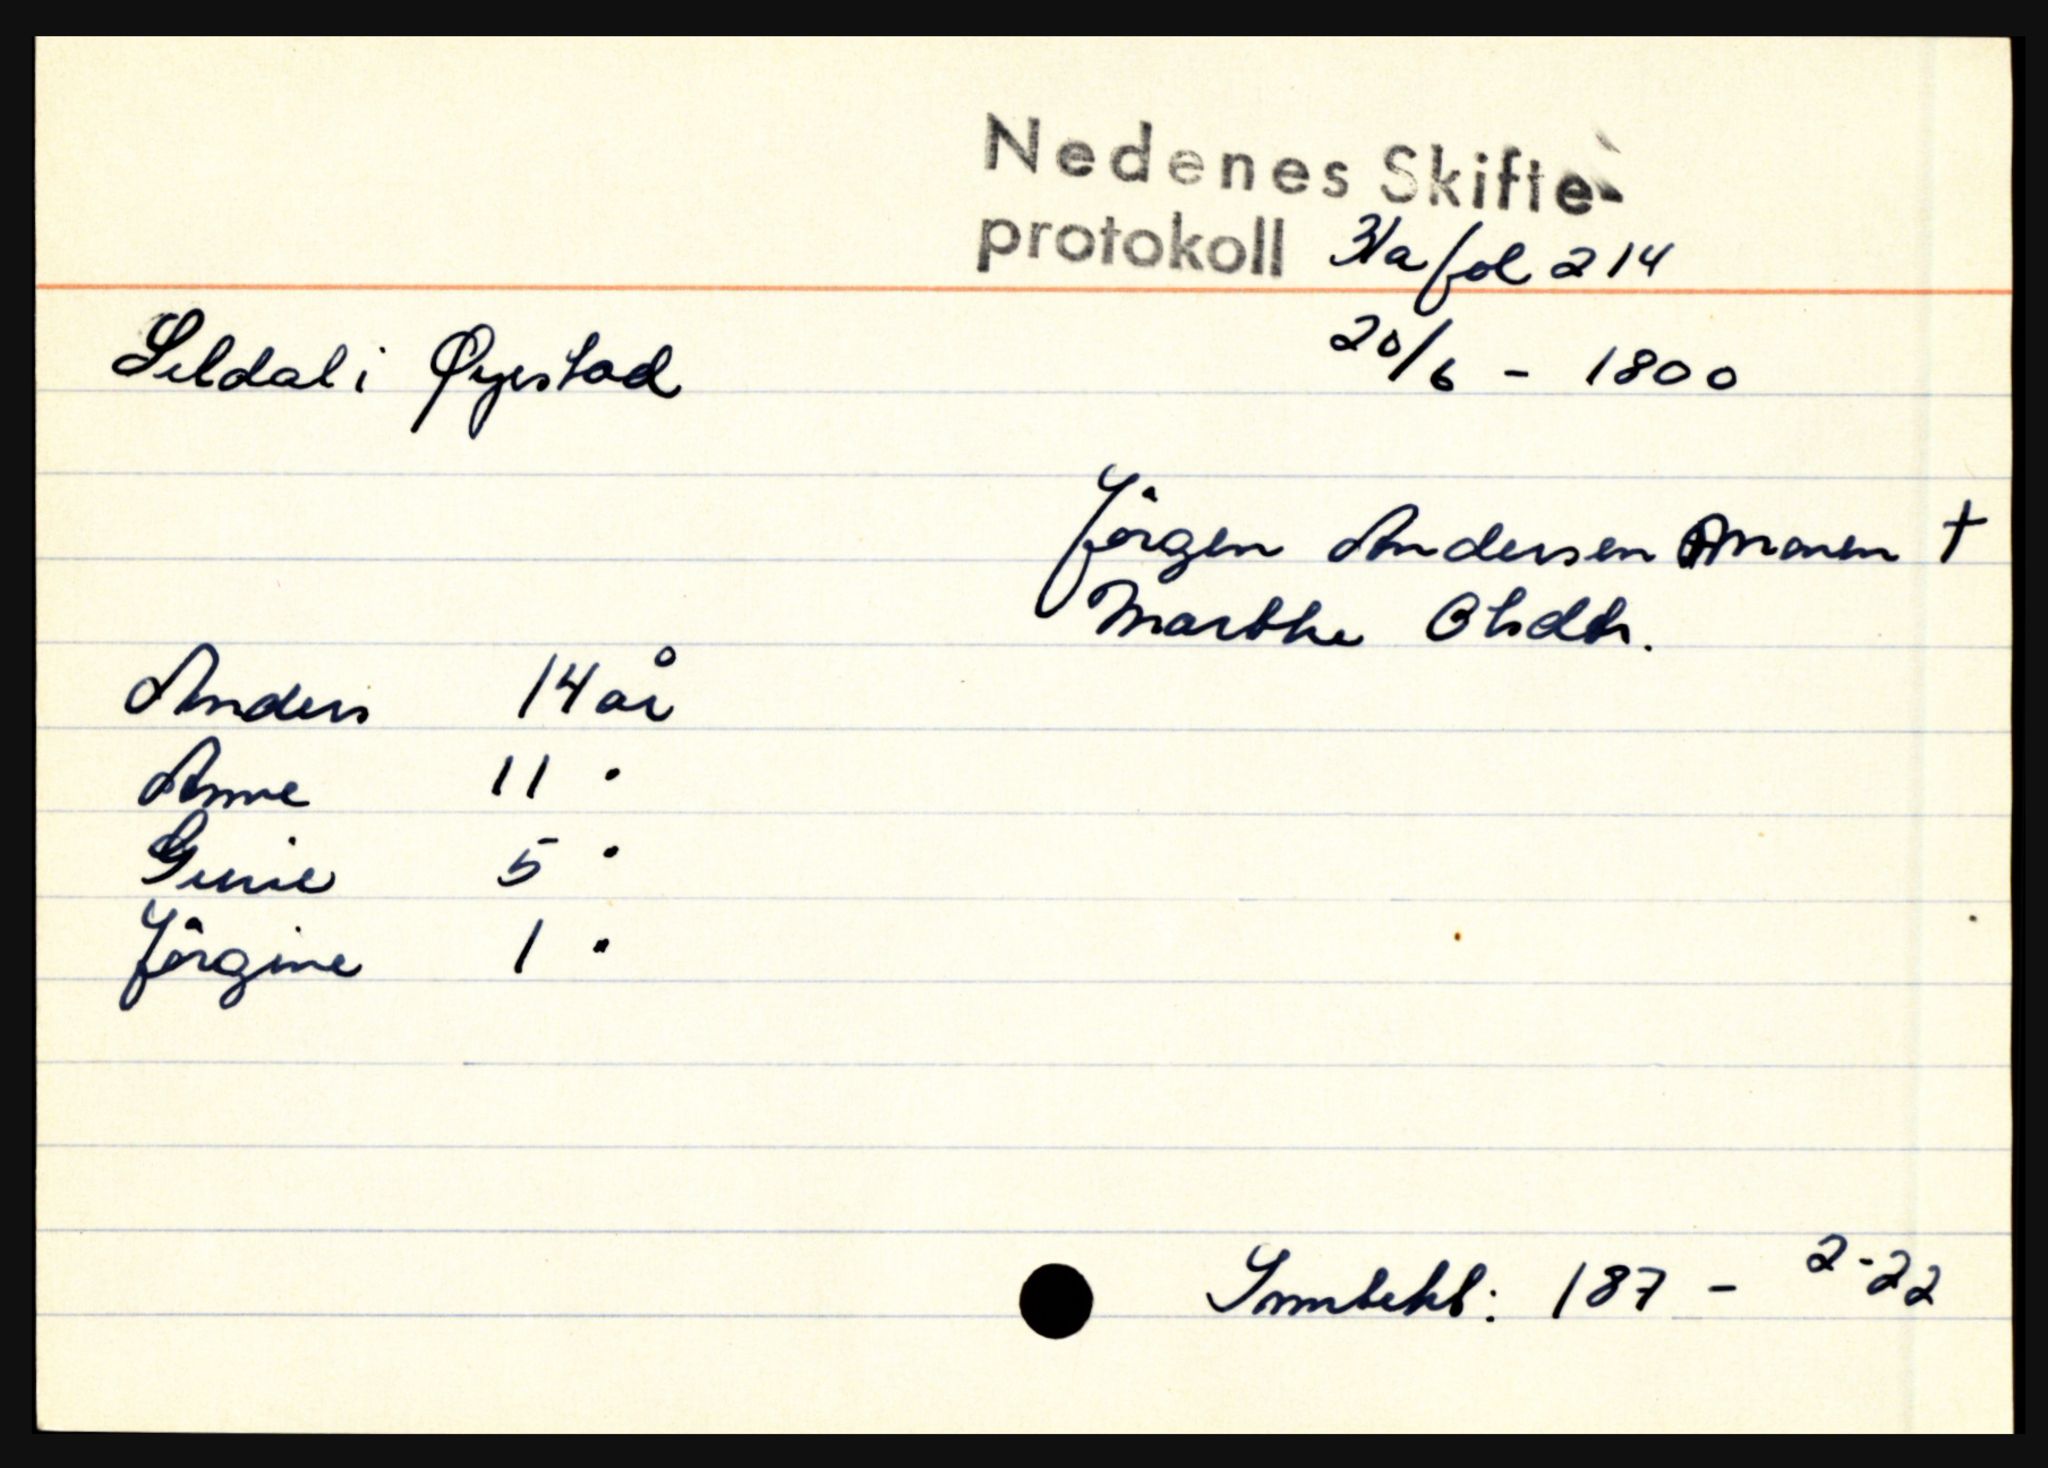 Nedenes Skifte-
protokoll 31a fol 214
Seldal i Øyestad 20/6 - 1800
Jörgen Andersen Monen †
Marthe Olsdtr.
Anders 14 år
Anne 11 "
Gurie 5 "
Jörgine 1 "
: 187 - 2-22